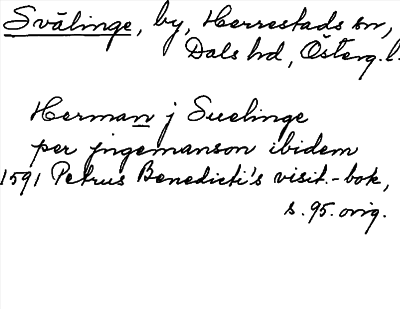 Svälinge, by, Herrestads sn,
Dals hd, Österg. l.
Herman j Suelinge
per jngemanson ibidem
1591 Petrus Benedicti's visit.-bok,
s. 95. orig.